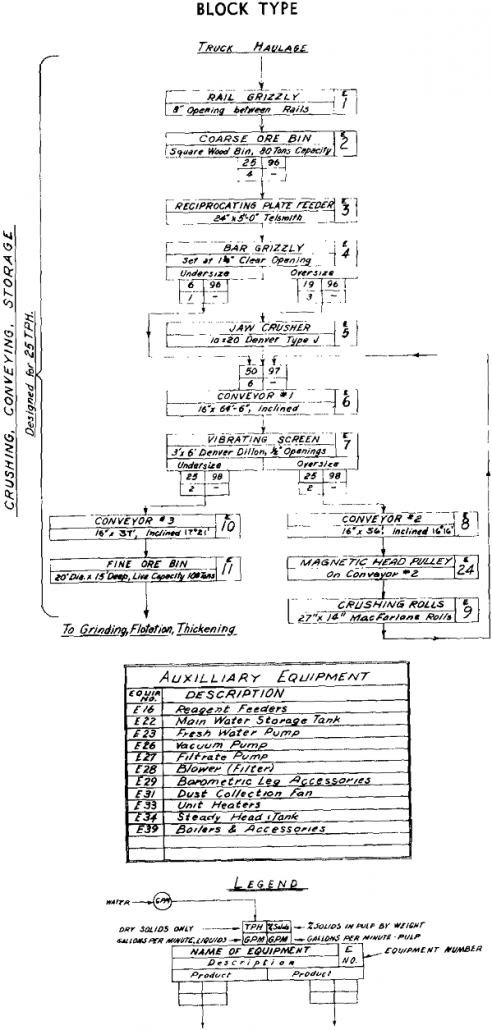 BLOCK TYPE
TRUCK HAULAGE
RAIL GRIZZLY
8" Opening between Rails
E
1
COARSE ORE BIN
Square Wood Bin, 80 Tons Capacity
E
2
25 96
4 -
RECIPROCATING PLATE FEEDER
24" x 5'-0" Telsmith
E
3
BAR GRIZZLY
Set at Clear Opening
E
4
Undersize Oversize
6 96 19 96
1 - 3 -
JAW CRUSHER
10 x 20 Denver Type J
E
5
50 97
6 -
CONVEYOR #1
16" x 64'-6", Inclined
E
6
VIBRATING SCREEN
3'x 6' Denver Dillon, ½" Openings
E
7
Undersize Oversize
25 98 25 98
2 - 2 -
CRUSHING, CONVEYING, STORAGE
Designed for 25 TPH.
CONVEYOR #3
16" x 57', Inclined 17°21'
E
10
FINE ORE BIN
20' Dia. x 15' Deep, Live Capacity Tons
E
11
To Grinding, Flotation, Thickening
CONVEYOR #2
16" x 56', Inclined 16°16'
E
8
MAGNETIC HEAD PULLEY
on Conveyor #2
E
24
CRUSHING ROLLS
27" x 14" MacFarlane Rolls
E
9
AUXILLIARY EQUIPMENT
EQUIP. NO. DESCRIPTION
E16 Reagent Feeders
E22 Main Water Storage Tank
E23 Fresh Water Pump
E26 Vacuum Pump
E27 Filtrate Pump
E28 Blower (Filter)
E29 Barometric Leg Accessories
E31 Dust Collection Fan
E33 Unit Heaters
E34 Steady Head Tank
E39 Boilers & Accessories
LEGEND
WATER GPM
DRY SOLIDS ONLY TPH % Solids % SOLIDS IN PULP BY WEIGHT
GALLONS PER MINUTE, LIQUIDS GPM GPM GALLONS PER MINUTE-PULP
NAME OF EQUIPMENT E NO. EQUIPMENT NUMBER
Description
Product Product